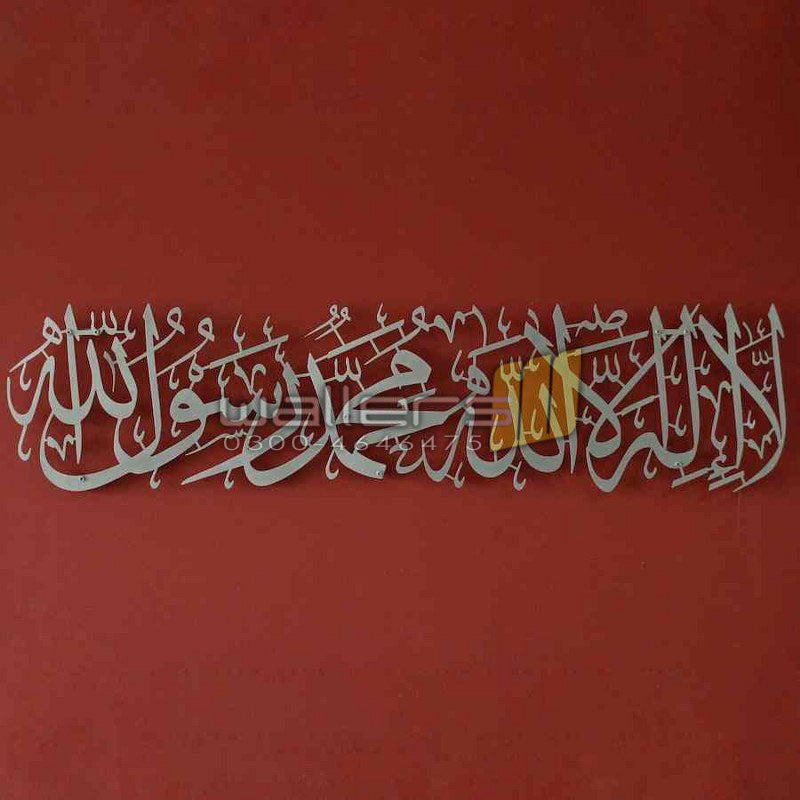 لَا إِلٰهَ إِلَّا اللّٰهُ مُحَمَّدٌ رَسُوْلُ اللّٰهِ
wallers
0300 4646475